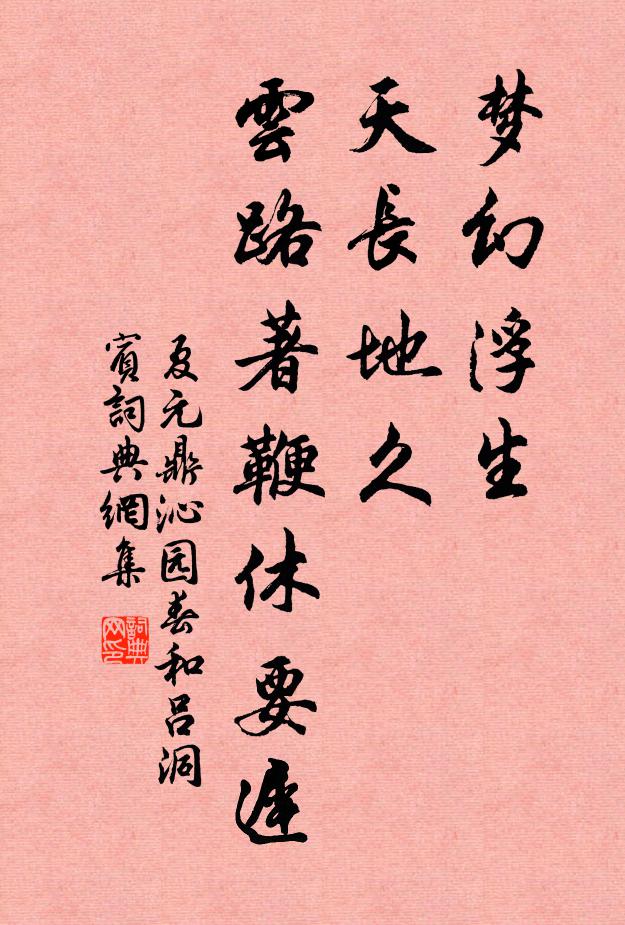 梦幻浮生
天長地久
雲路著鞭休要遲
夏元鼎沁园春和吕洞
賓詞典網集
詞典
网印